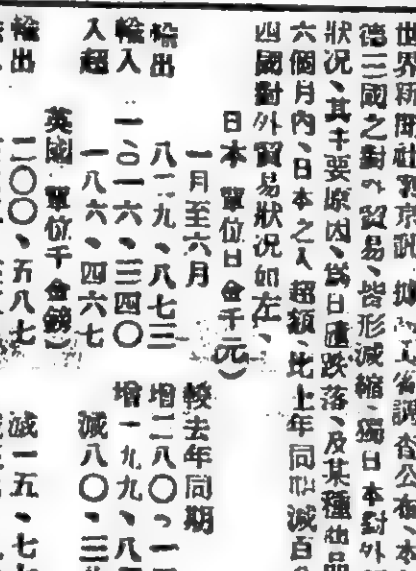 世界新聞社東京訊、據工省調查公布、本
德三國之對外貿易、皆形減縮、獨日本對外
狀況、其主要原因、爲日匯跌落、及某種出品
六個月內、日本之入超額、比上年同期減百分
四國對外貿易狀況如左、
日本 單位日金千元）
一月至六月 較去年同期
輸出 八二九、八七三 增二八〇、一
輸入 一、〇一六、三四〇 增一九九、八
入超 一八六、四六七 減八〇、三
英國 單位千金鎊）
輸出 二〇〇、五八七 減一五、七七